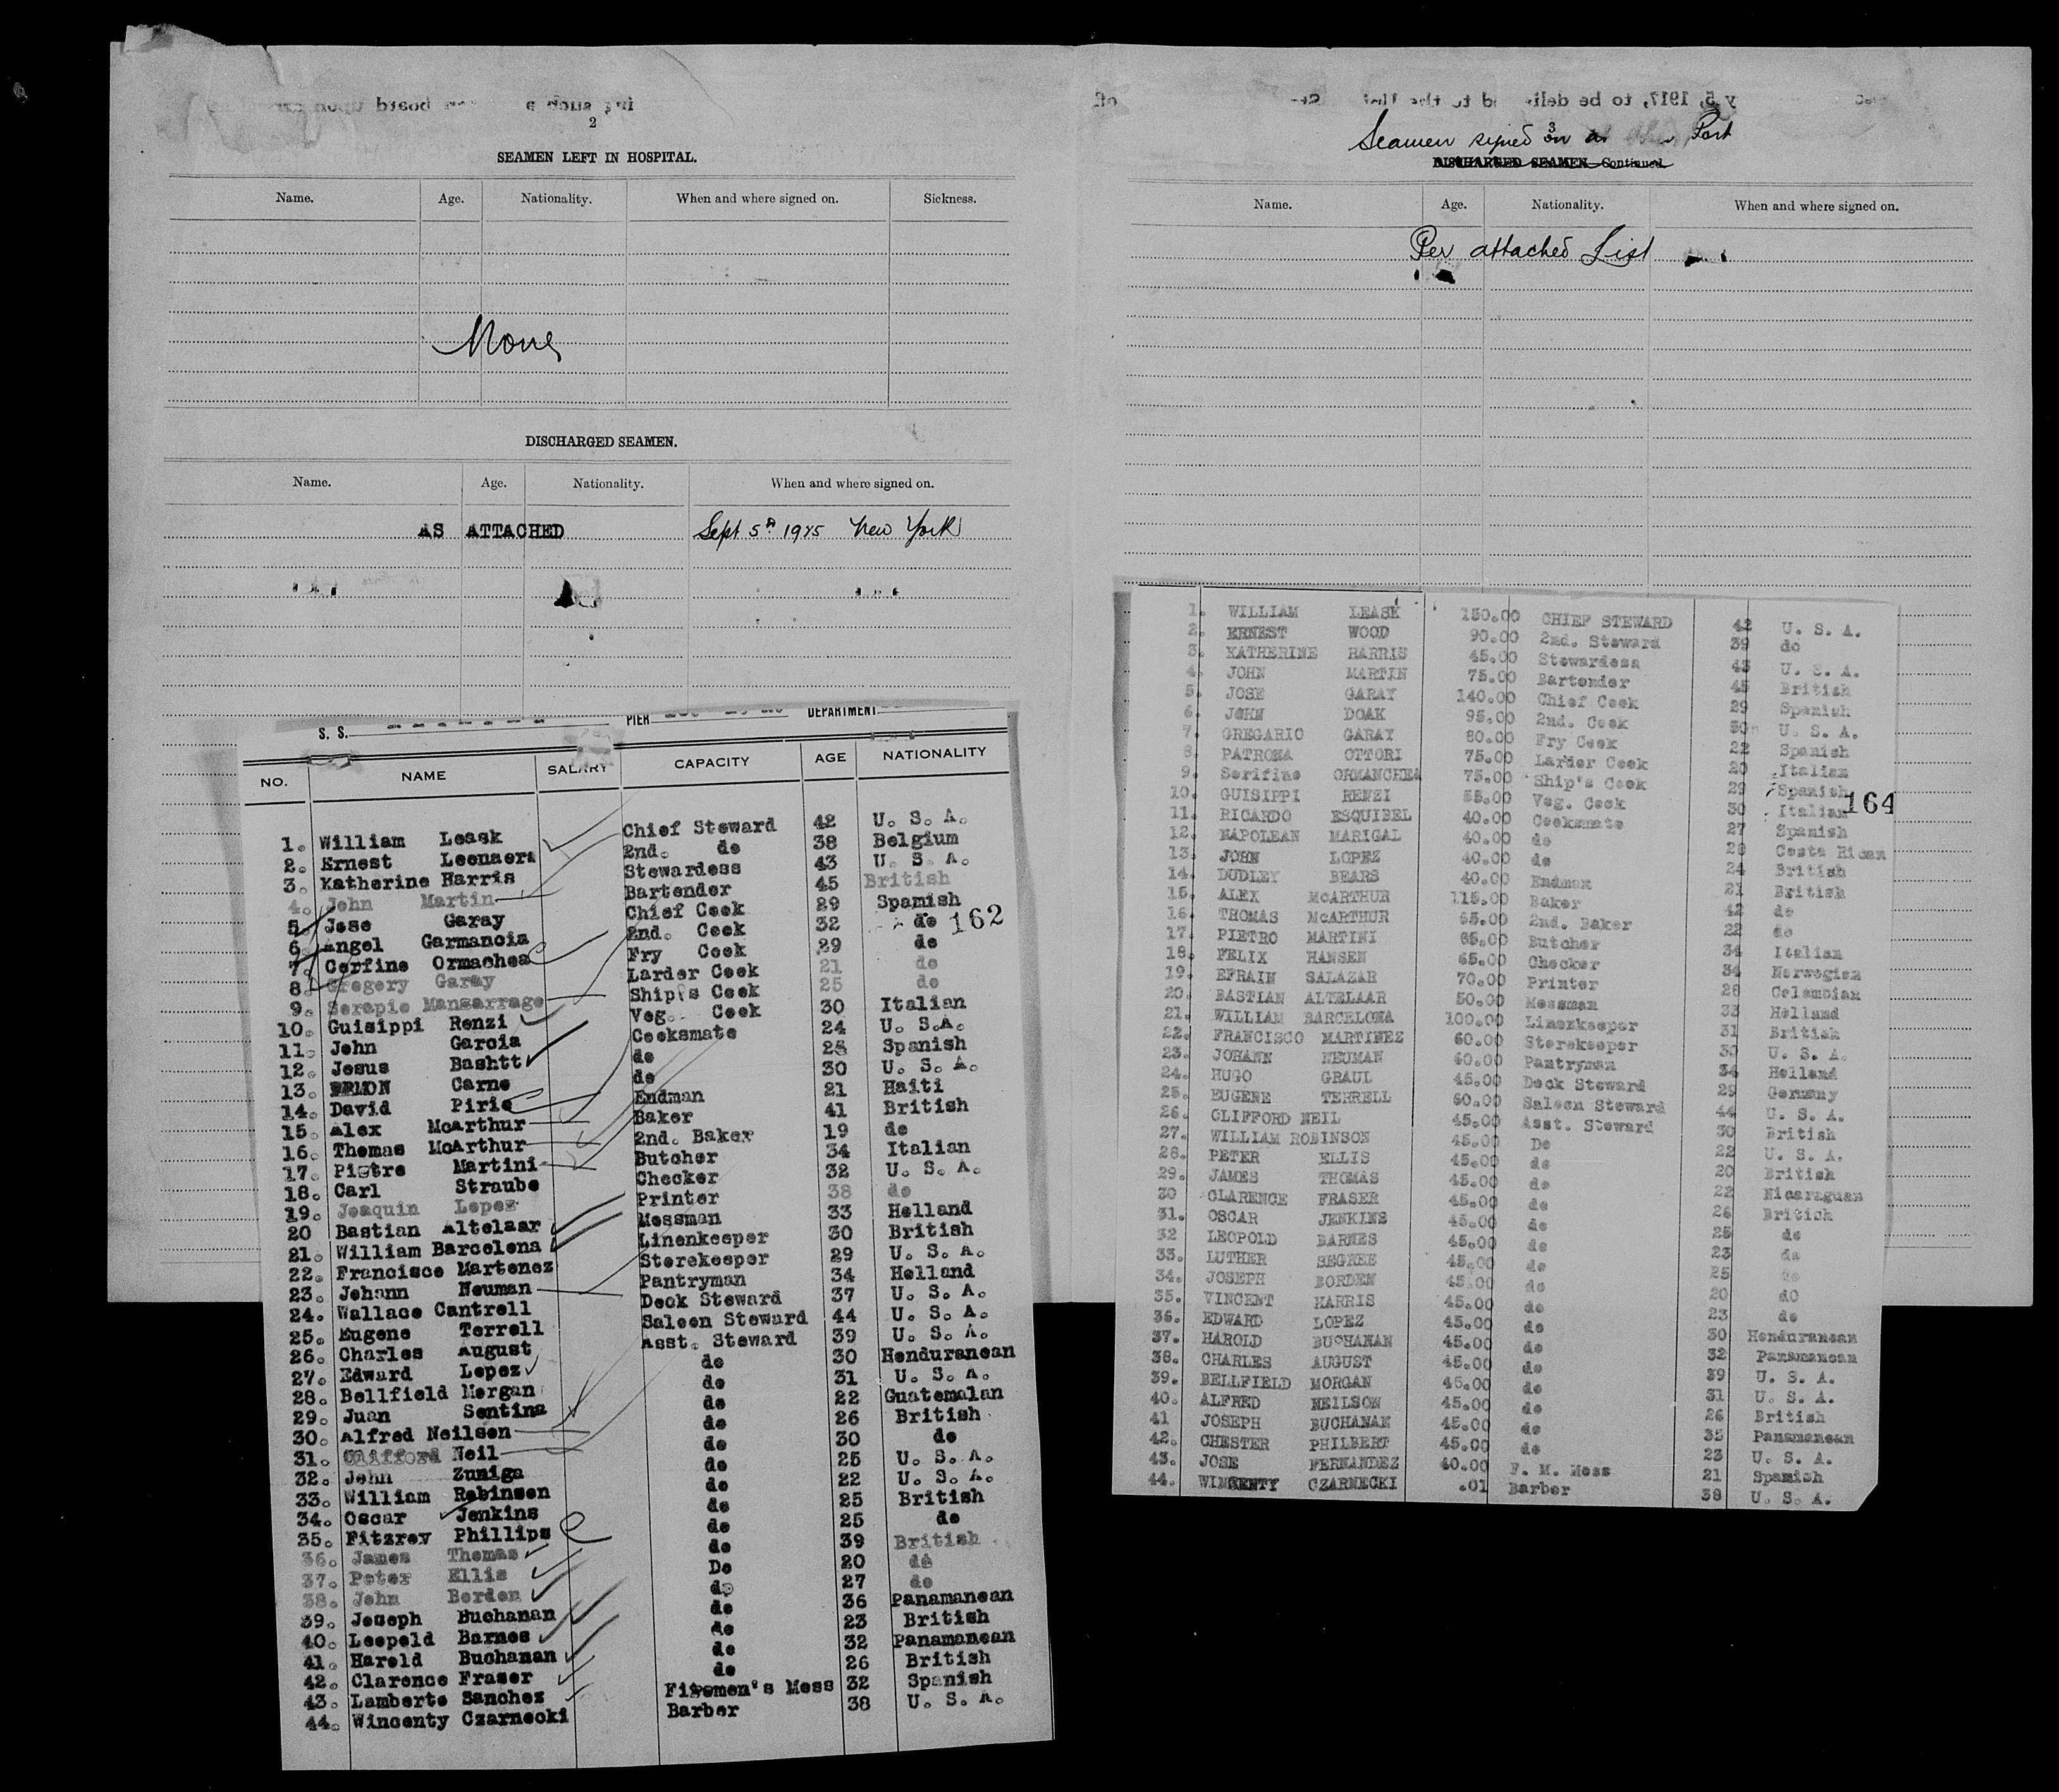 2
SEAMEN LEFT IN HOSPITAL.
Name. Age. Nationality. When and where signed on. Sickness.
None
DISCHARGED SEAMEN.
Name. Age. Nationality. When and where signed on.
AS ATTACHED Sept 5th 1925 New York
S. S. PIER DEPARTMENT
NO. NAME SALARY CAPACITY AGE NATIONALITY
1. William Leask Chief Steward 42 U. S. A.
2. Ernest Leenaers 2nd. do 38 Belgium
3. Katherine Harris Stewardess 43 U. S. A.
4. John Martin Bartender 45 British
5. Jose Garay Chief Cook 29 Spanish
6. Angel Garmancia 2nd. Cook 32 do
162
7. Cerfino Ormachea Fry Cook 29 do
8. Gregory Garay Larder Cook 21 do
9. Serapio Mansarrage Ship's Cook 25 do
10. Guisippi Renzi Veg. Cook 30 Italian
11. John Garcia Cooksmate 24 U. S.A.
12. Jesus Bashtt do 25 Spanish
13. Carne do 30 U. S. A.
14. David Pirie Endman 21 Haiti
15. Alex McArthur Baker 41 British
16. Thomas McArthur 2nd. Baker 19 do
17. Pietro Martini Butcher 34 Italian
18. Carl Straube Checker 32 U. S. A.
19. Joaquin Lopez Printer 38 do
20 Bastian Altelaar Messman 33 Holland
21. William Barcelona Linenkeeper 30 British
22. Francisco Martenez Storekeeper 29 U. S. A.
23. Johann Neuman Pantryman 34 Holland
24. Wallace Cantrell Deck Steward 37 U. S. A.
25. Eugene Terrell Saloon Steward 44 U. S. A.
26. Charles August Asst. Steward 39 U. S. A.
27. Edward Lopez do 30 Honduranean
28. Bellfield Morgan do 31 U. S. A.
29. Juan Sentina do 22 Guatemalan
30. Alfred Neilson do 26 British
31. Clifford Neil do 30 do
32. John Zuniga do 25 U. S. A.
33. William Robinson do 22 U. S. A.
34. Oscar Jenkins do 25 British
35. Fitzroy Phillips do 25 do
36. James Thomas do 39 British
37. Peter Ellis De 20 do
38. John Borden do 27 do
39. Joseph Buchanan do 36 Panamanean
40. Leopold Barnes do 23 British
41. Harold Buchanan do 32 Panamanean
42. Clarence Fraser do 26 British
43. Lamberto Sanchez Firemen's Mess 32 Spanish
44. Wincenty Czarnecki Barber 38 U. S. A.
y 5, 1917, to be deli
3
Seamen signed on Port
DISCHARGED SEAMEN—Continued.
Name. Age. Nationality. When and where signed on.
Per attached List
1. WILLIAM LEASK 150.00 CHIEF STEWARD 42 U. S. A.
2. ERNEST WOOD 90.00 2nd. Steward 39 do
3. KATHERINE HARRIS 45.00 Stewardess 43 U. S. A.
4. JOHN MARTIN 75.00 Bartender 45 British
5. JOSE GARAY 140.00 Chief Cook 29 Spanish
6. JOHN DOAK 95.00 2nd. Cook 50 U. S. A.
7. GREGARIO GARAY 80.00 Fry Cook 22 Spanish
8. PATRONA OTTORI 75.00 Larder Cook 20 Italian
9. Serifino ORMANCHEA 75.00 Ship's Cook 29 Spanish
164
10. GUISIPPI RENZI 55.00 Veg. Cook 30 Italian
11. RICARDO ESQUIBEL 40.00 Cooksmate 27 Spanish
12. NAPOLEAN MARIGAL 40.00 do 28 Costa Rican
13. JOHN LOPEZ 40.00 do 24 British
14. DUDLEY BEARS 40.00 Endman 21 British
15. ALEX McARTHUR 115.00 Baker 42 do
16. THOMAS McARTHUR 65.00 2nd. Baker 22 do
17. PIETRO MARTINI 65.00 Butcher 34 Italian
18. FELIX HANSEN 65.00 Checker 34 Norwegian
19. EFRAIN SALAZAR 70.00 Printer 28 Colombian
20. BASTIAN ALTELAAR 50.00 Messman 33 Holland
21. WILLIAM BARCELONA 100.00 Linenkeeper 31 British
22. FRANCISCO MARTINEZ 60.00 Storekeeper 30 U. S. A.
23. JOHANN NEUMAN 60.00 Pantryman 34 Holland
24. HUGO GRAUL 45.00 Deck Steward 29 Germany
25. EUGENE TERRELL 60.00 Saloon Steward 44 U. S. A.
26. CLIFFORD NEIL 45.00 Asst. Steward 30 British
27. WILLIAM ROBINSON 45.00 De 22 U. S. A.
28. PETER ELLIS 45.00 do 20 British
29. JAMES THOMAS 45.00 do 22 Nicaraguan
30 CLARENCE FRASER 45.00 do 26 British
31. OSCAR JENKINS 45.00 do 25 do
32 LEOPOLD BARNES 45.00 do 23 do
33. LUTHER SEGREE 45.00 do 25 do
34. JOSEPH BORDEN 45.00 do 20 do
35. VINCENT HARRIS 45.00 do 23 do
36. EDWARD LOPEZ 45.00 do 30 Honduranean
37. HAROLD BUCHANAN 45.00 do 32 Panamanean
38. CHARLES AUGUST 45.00 do 39 U. S. A.
39. BELLFIELD MORGAN 45.00 do 31 U. S. A.
40. ALFRED NEILSON 45.00 do 26 British
41 JOSEPH BUCHANAN 45.00 do 35 Panamanean
42. CHESTER PHILBERT 45.00 do 23 U. S. A.
43. JOSE FERNANDEZ 40.00 F. M. Mess 21 Spanish
44. WINCENTY CZARNECKI .01 Barber 38 U. S. A.